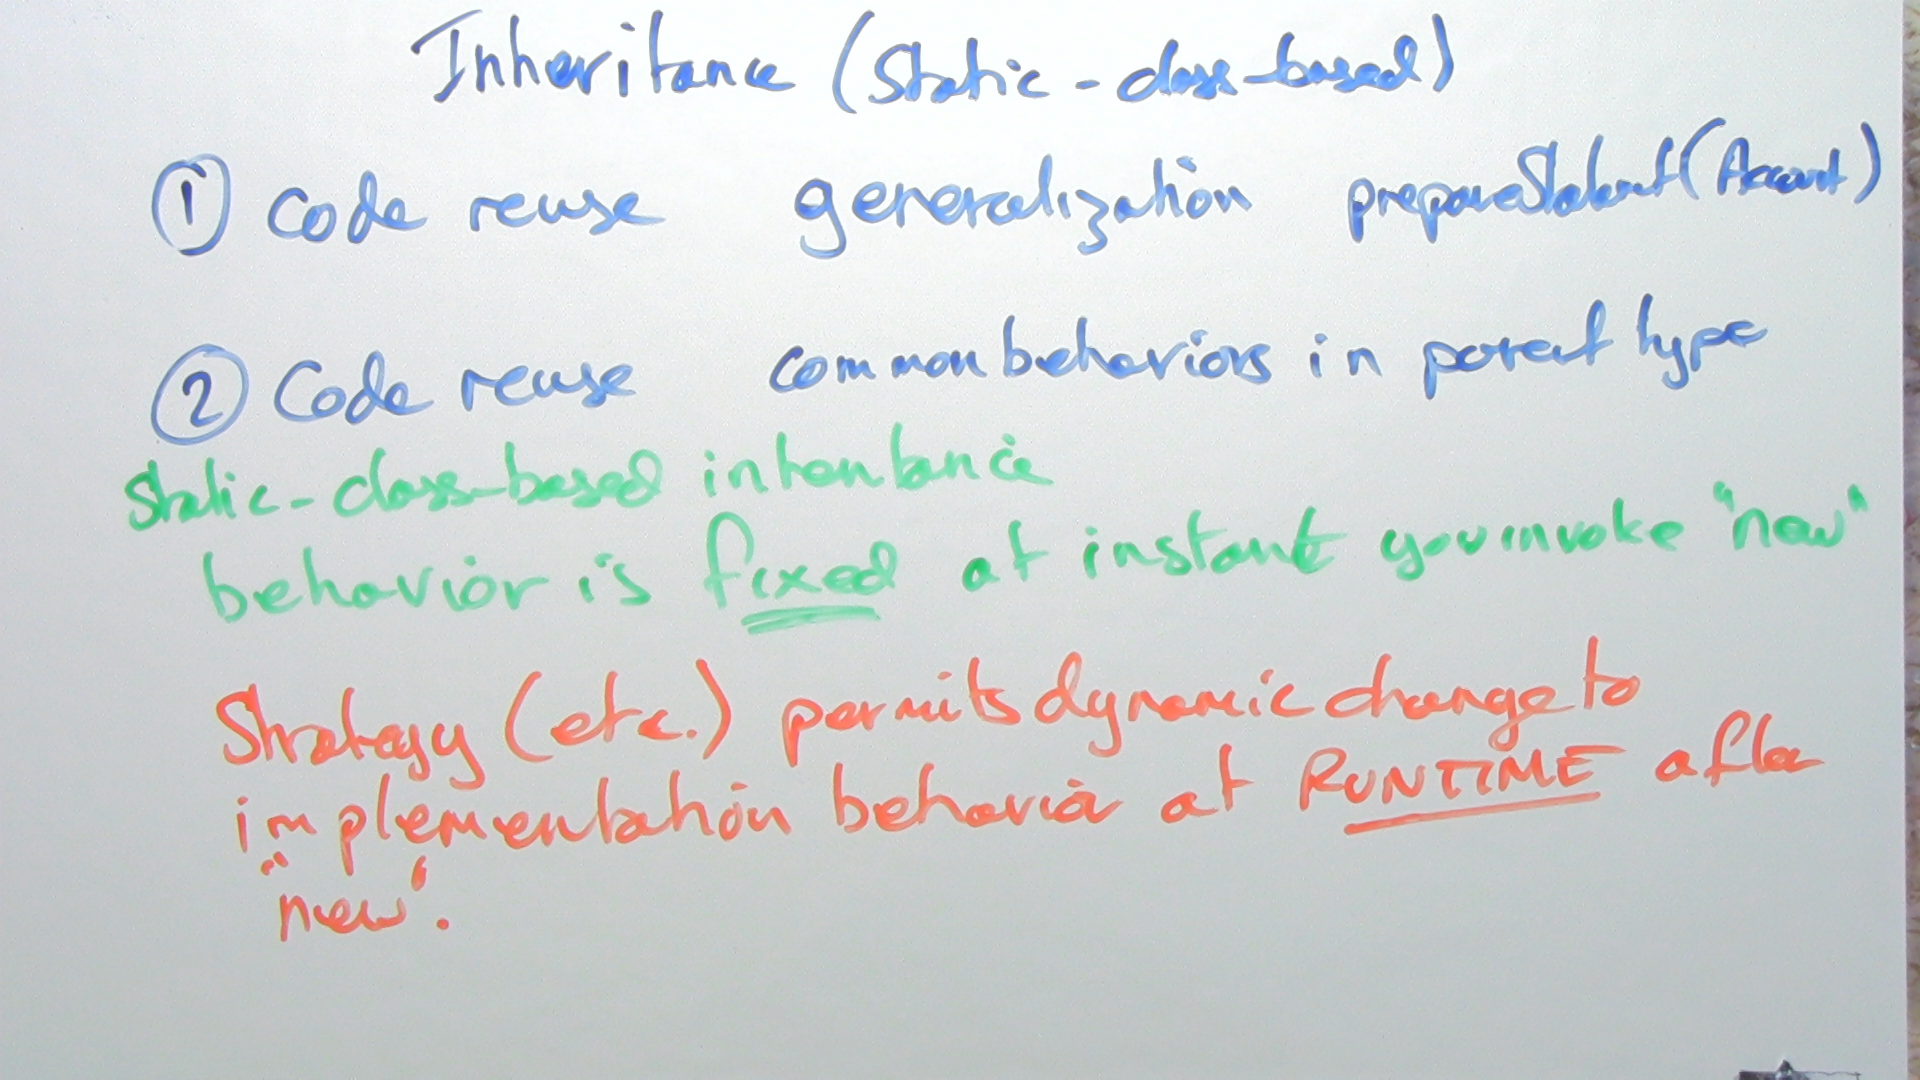 Inheritance (Static-class-based)
① Code reuse generalization prepareStatement(Account)
② Code reuse common behaviors in parent type
Static-class-based inheritance
behavior is fixed at instant you invoke "new"
Strategy (etc.) permits dynamic change to
implementation behavior at RUNTIME after
"new".